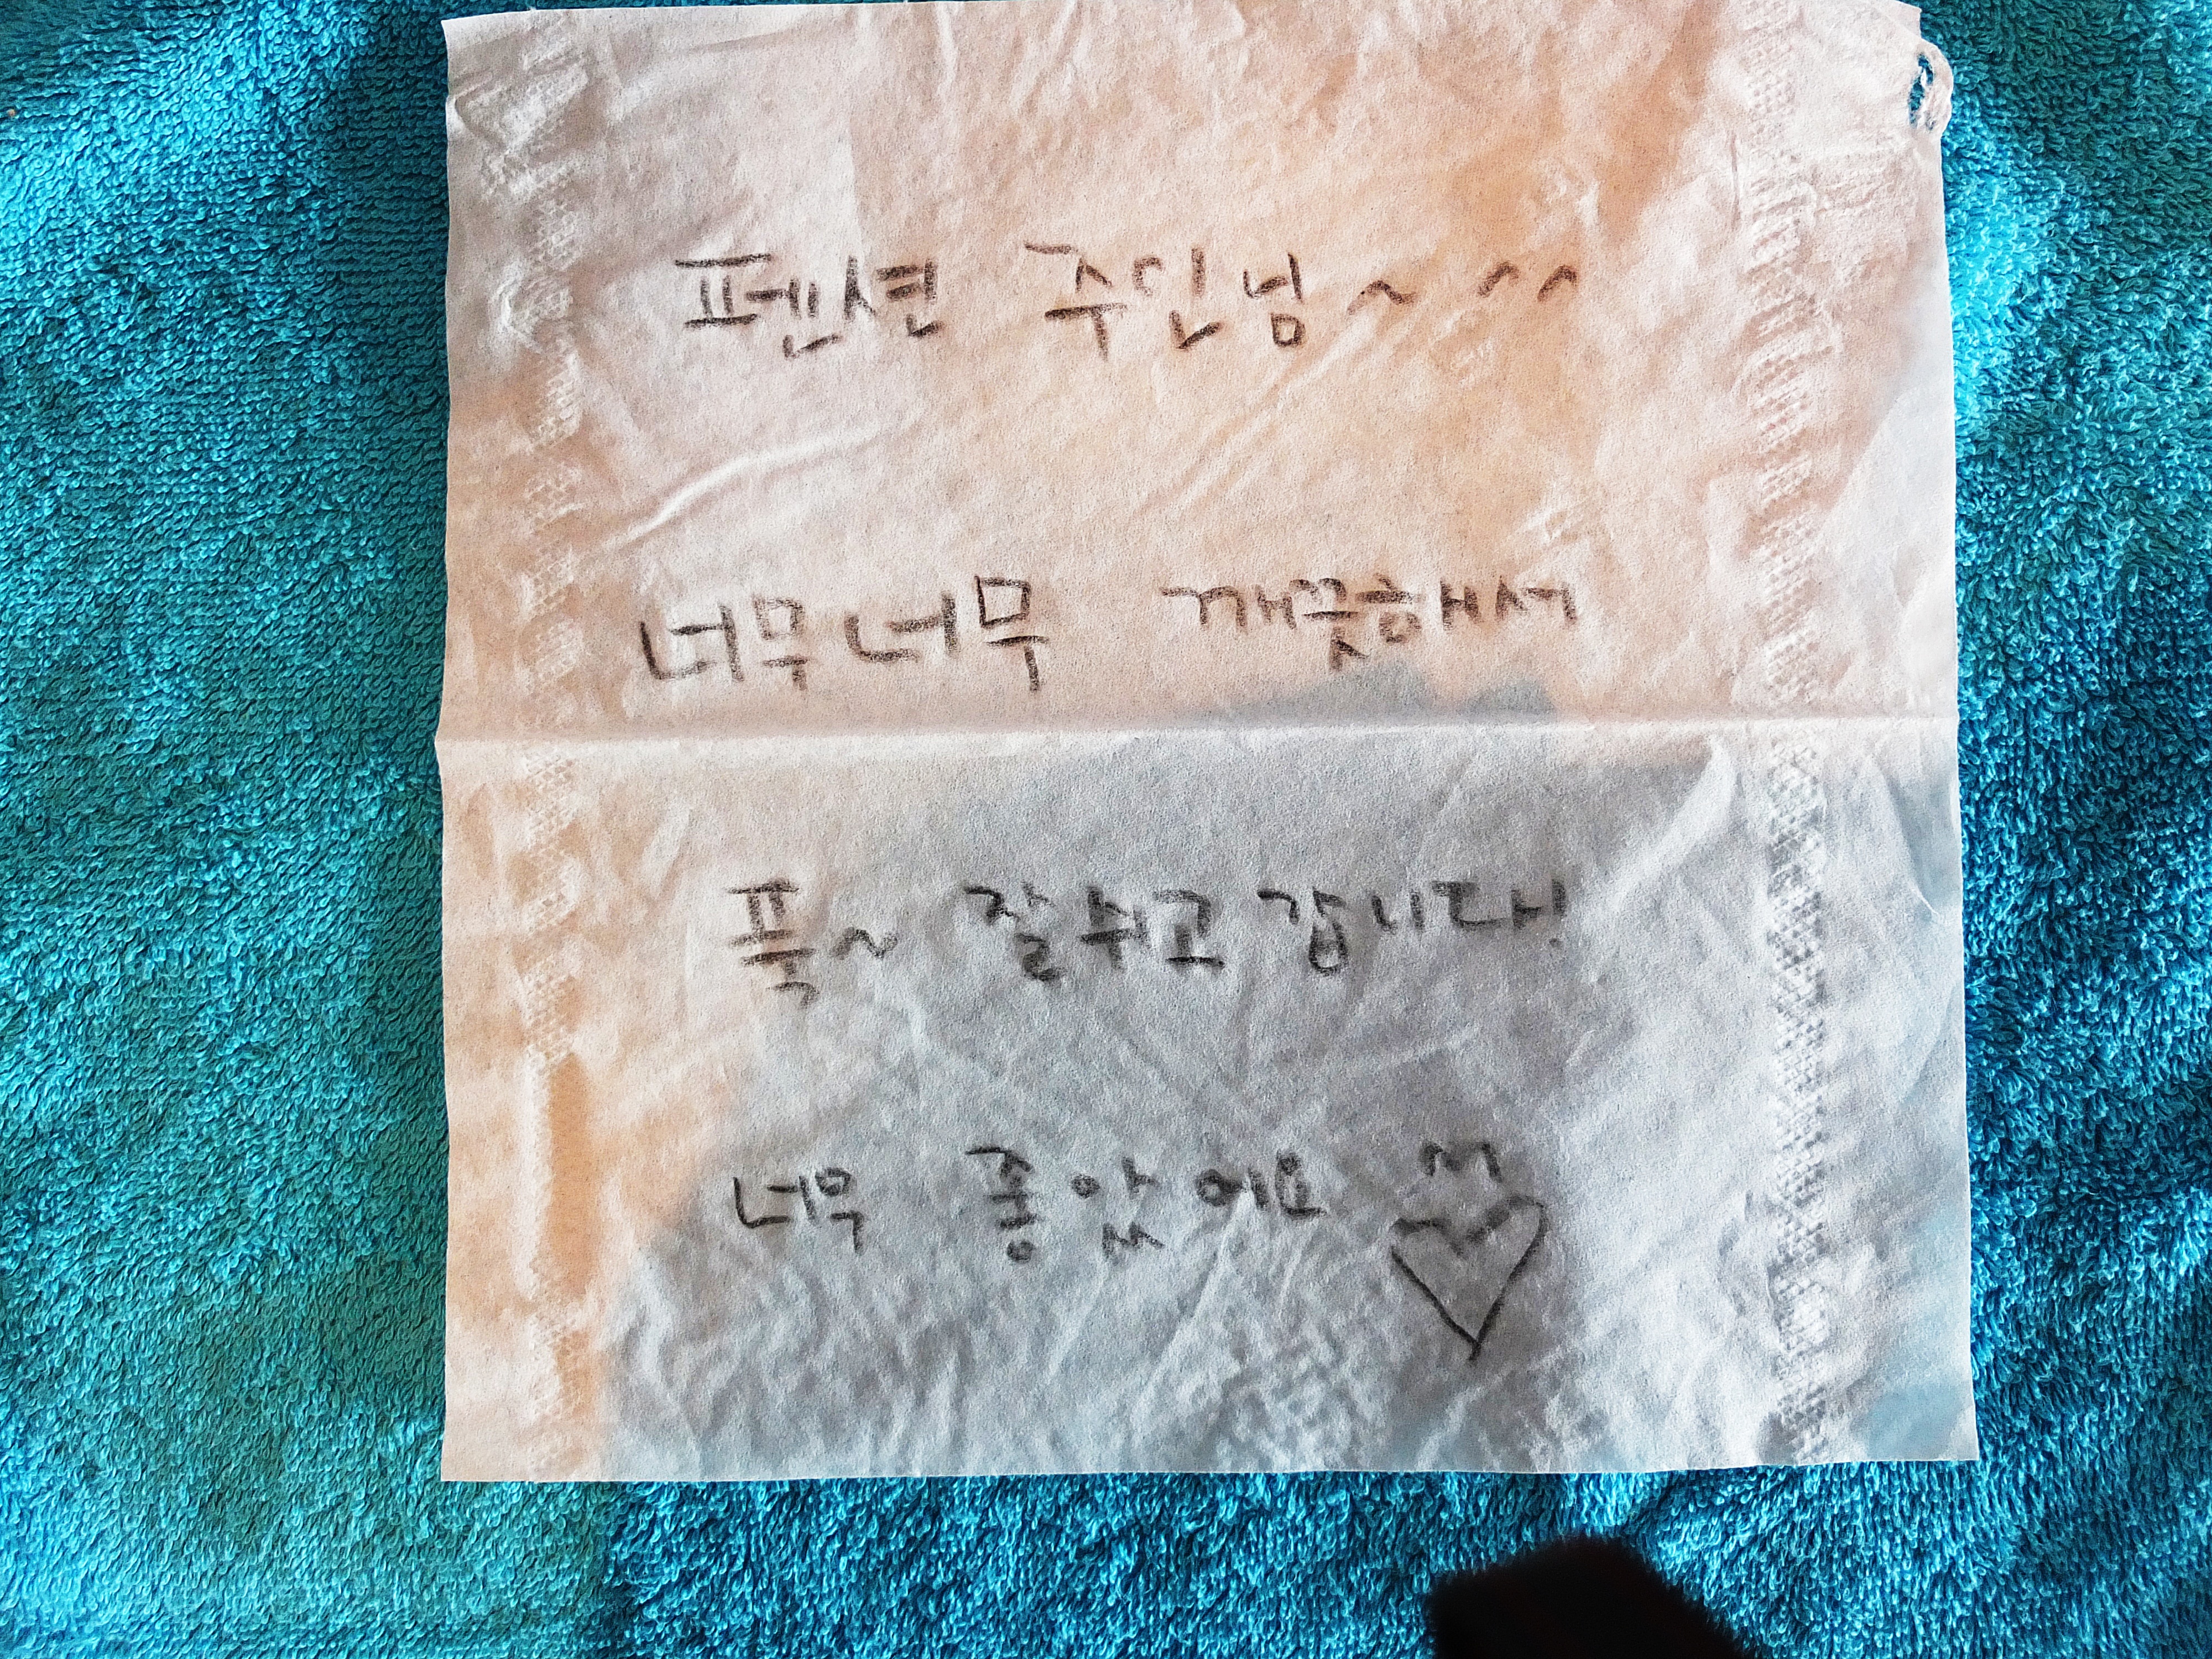 펜션 주인님~ ^^
너무너무 깨끗해서
푹~ 잘 쉬고 갑니다!
너무 좋았어요 ^^♡